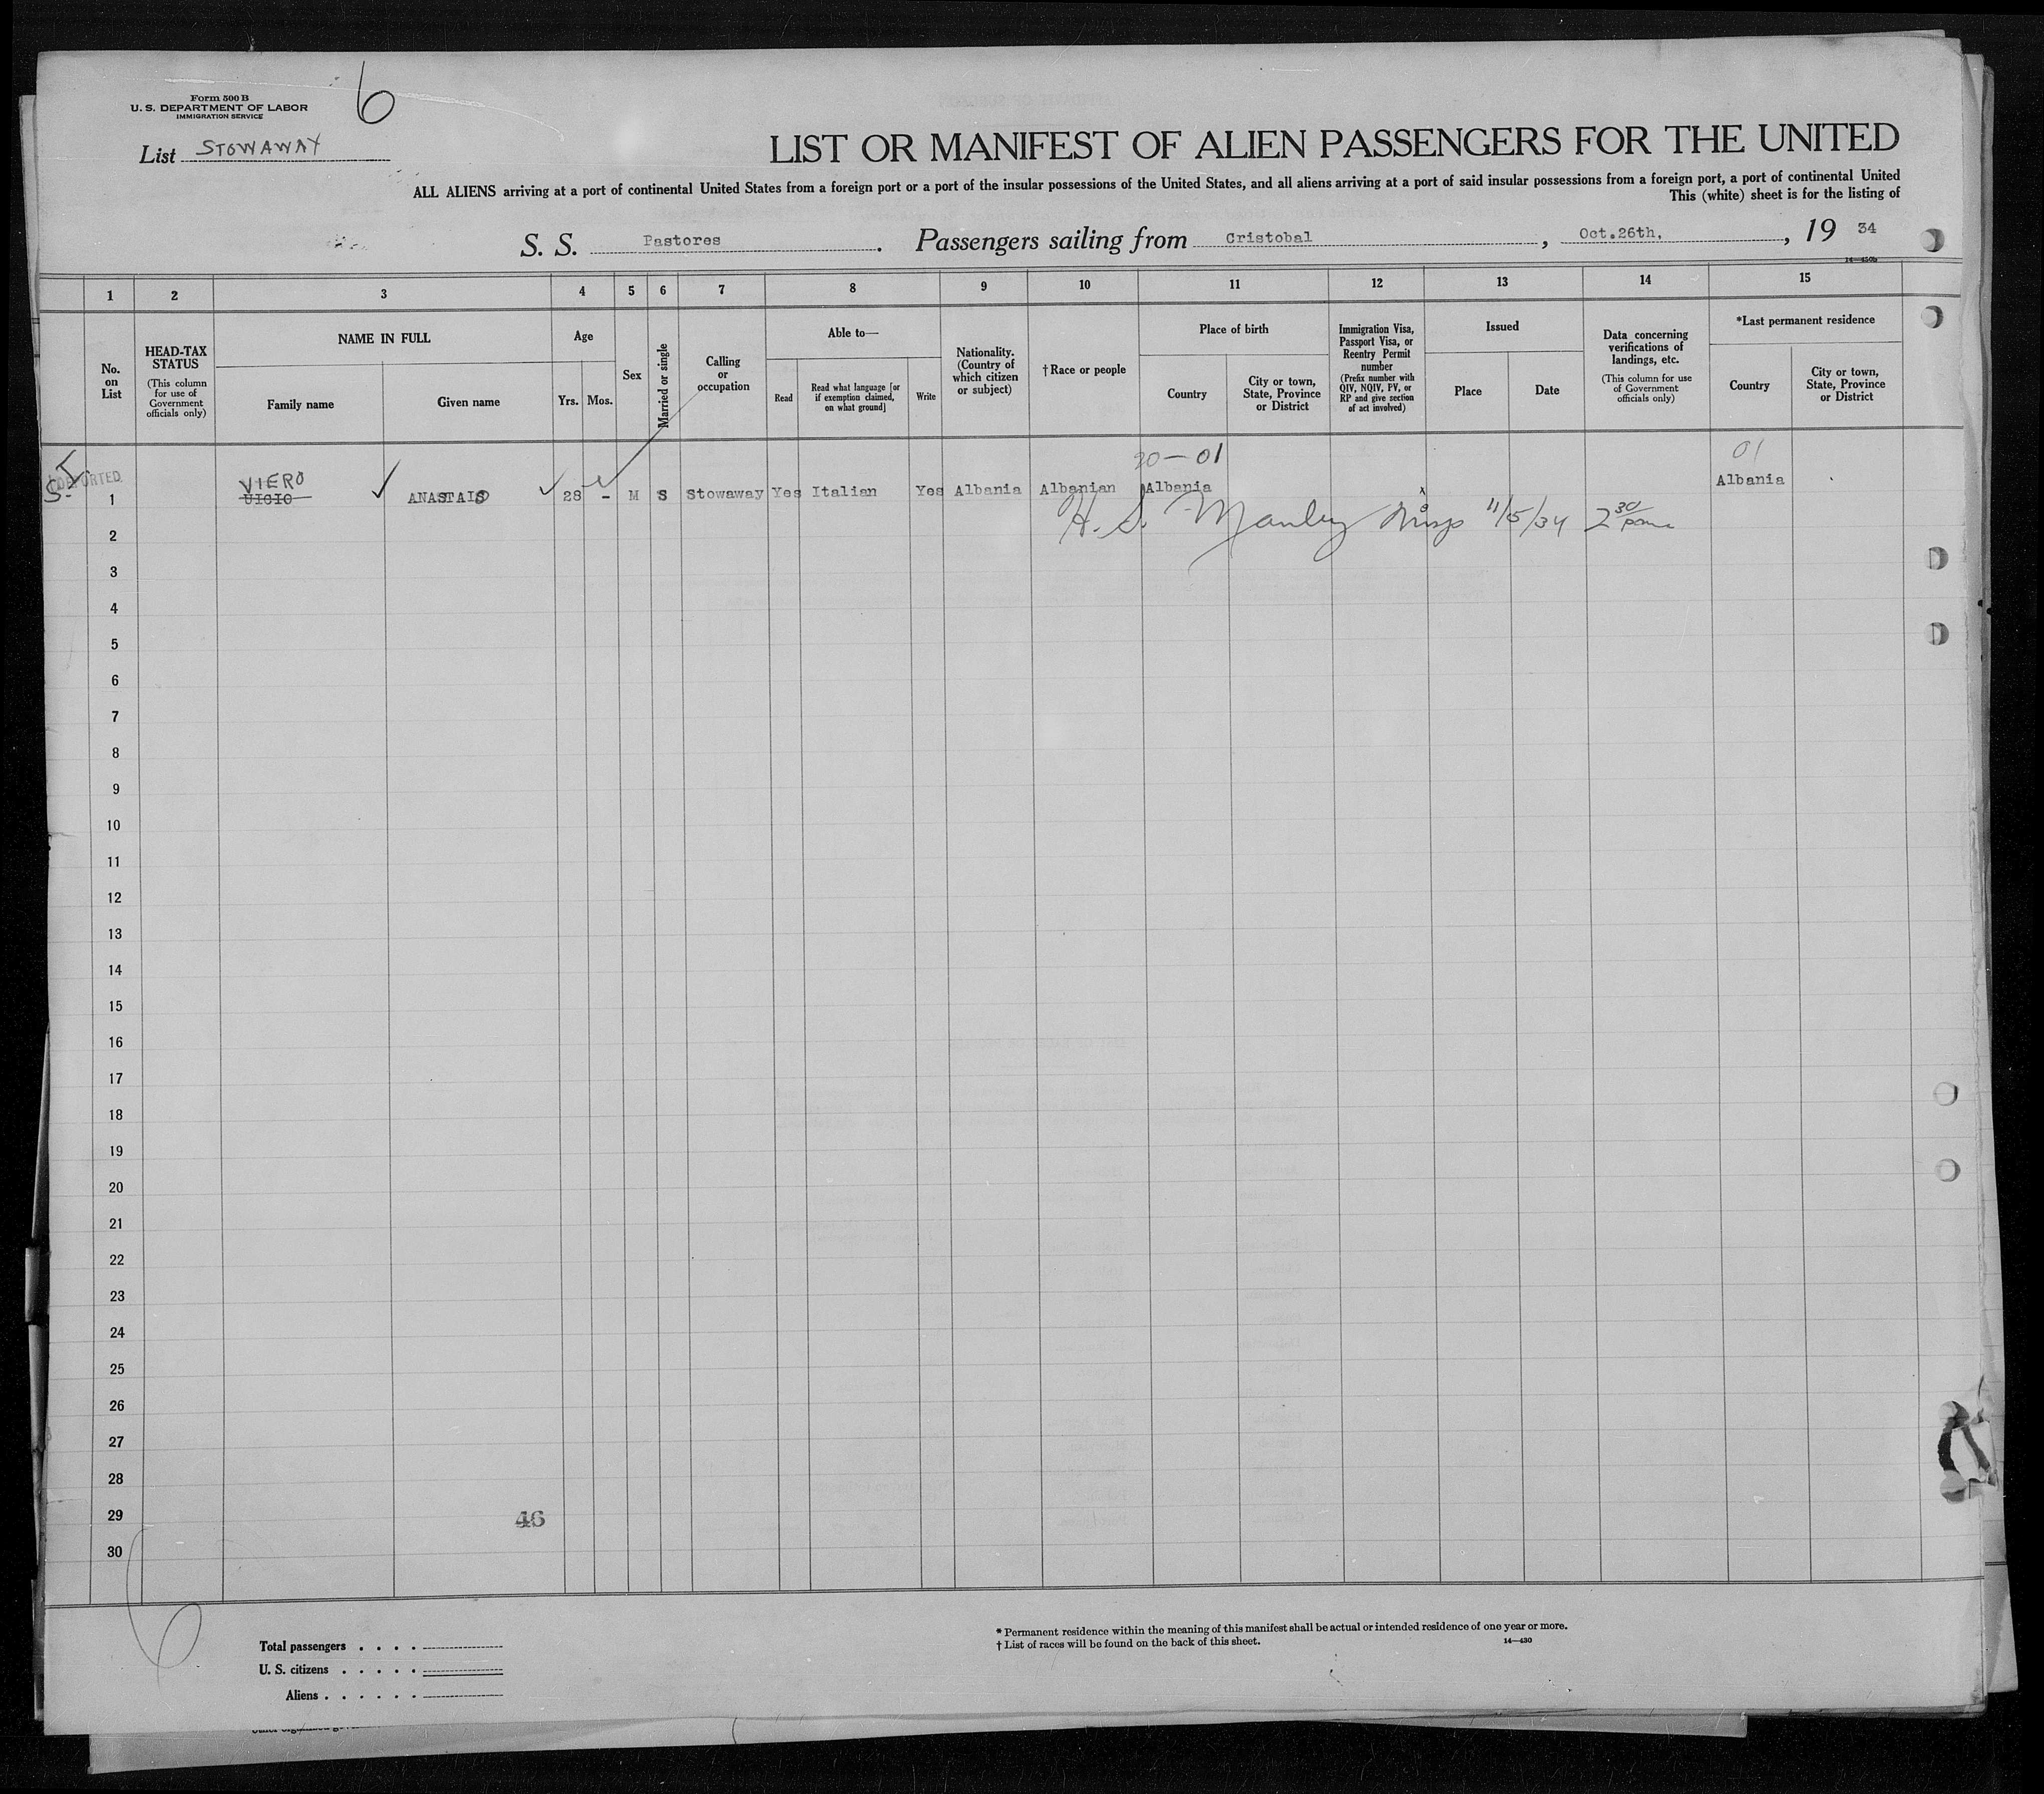 Form 500 B
U. S. DEPARTMENT OF LABOR
IMMIGRATION SERVICE
6
List STOWAWAY
LIST OR MANIFEST OF ALIEN PASSENGERS FOR THE UNITED
ALL ALIENS arriving at a port of continental United States from a foreign port or a port of the insular possessions of the United States, and all aliens arriving at a port of said insular possessions from a foreign port, a port of continental United
This (white) sheet is for the listing of
S. S. Pastores. Passengers sailing from Cristobal, Oct.26th, , 19 34
14—450b
1 2 3 4 5 6 7 8 9 10 11 12 13 14 15
No. on List
HEAD-TAX STATUS
(This column for use of Government officials only)
NAME IN FULL
Family name
Given name
Age
Yrs. Mos.
Sex
Married or single
Calling or occupation
Able to—
Read
Read what language [or if exemption claimed, on what ground]
Write
Nationality. (Country of which citizen or subject)
† Race or people
Place of birth
Country
City or town, State, Province or District
Immigration Visa, Passport Visa, or Reentry Permit number
(Prefix number with QIV, NQIV, PV, or RP and give section of act involved)
Issued
Place
Date
Data concerning verifications of landings, etc.
(This column for use of Government officials only)
*Last permanent residence
Country
City or town, State, Province or District
20—01 01
DEPORTED
VIERO
1 UICIO ANASTAIO 28 - M S Stowaway Yes Italian Yes Albania Albanian Albania Albania
H. S. Manley 11/5/34 2 30 pm
2
3
4
5
6
7
8
9
10
11
12
13
14
15
16
17
18
19
20
21
22
23
24
25
26
27
28
29 46
30
6
Total passengers . . . .
U. S. citizens . . . . .
Aliens . . . . . .
* Permanent residence within the meaning of this manifest shall be actual or intended residence of one year or more.
† List of races will be found on the back of this sheet.
14—430